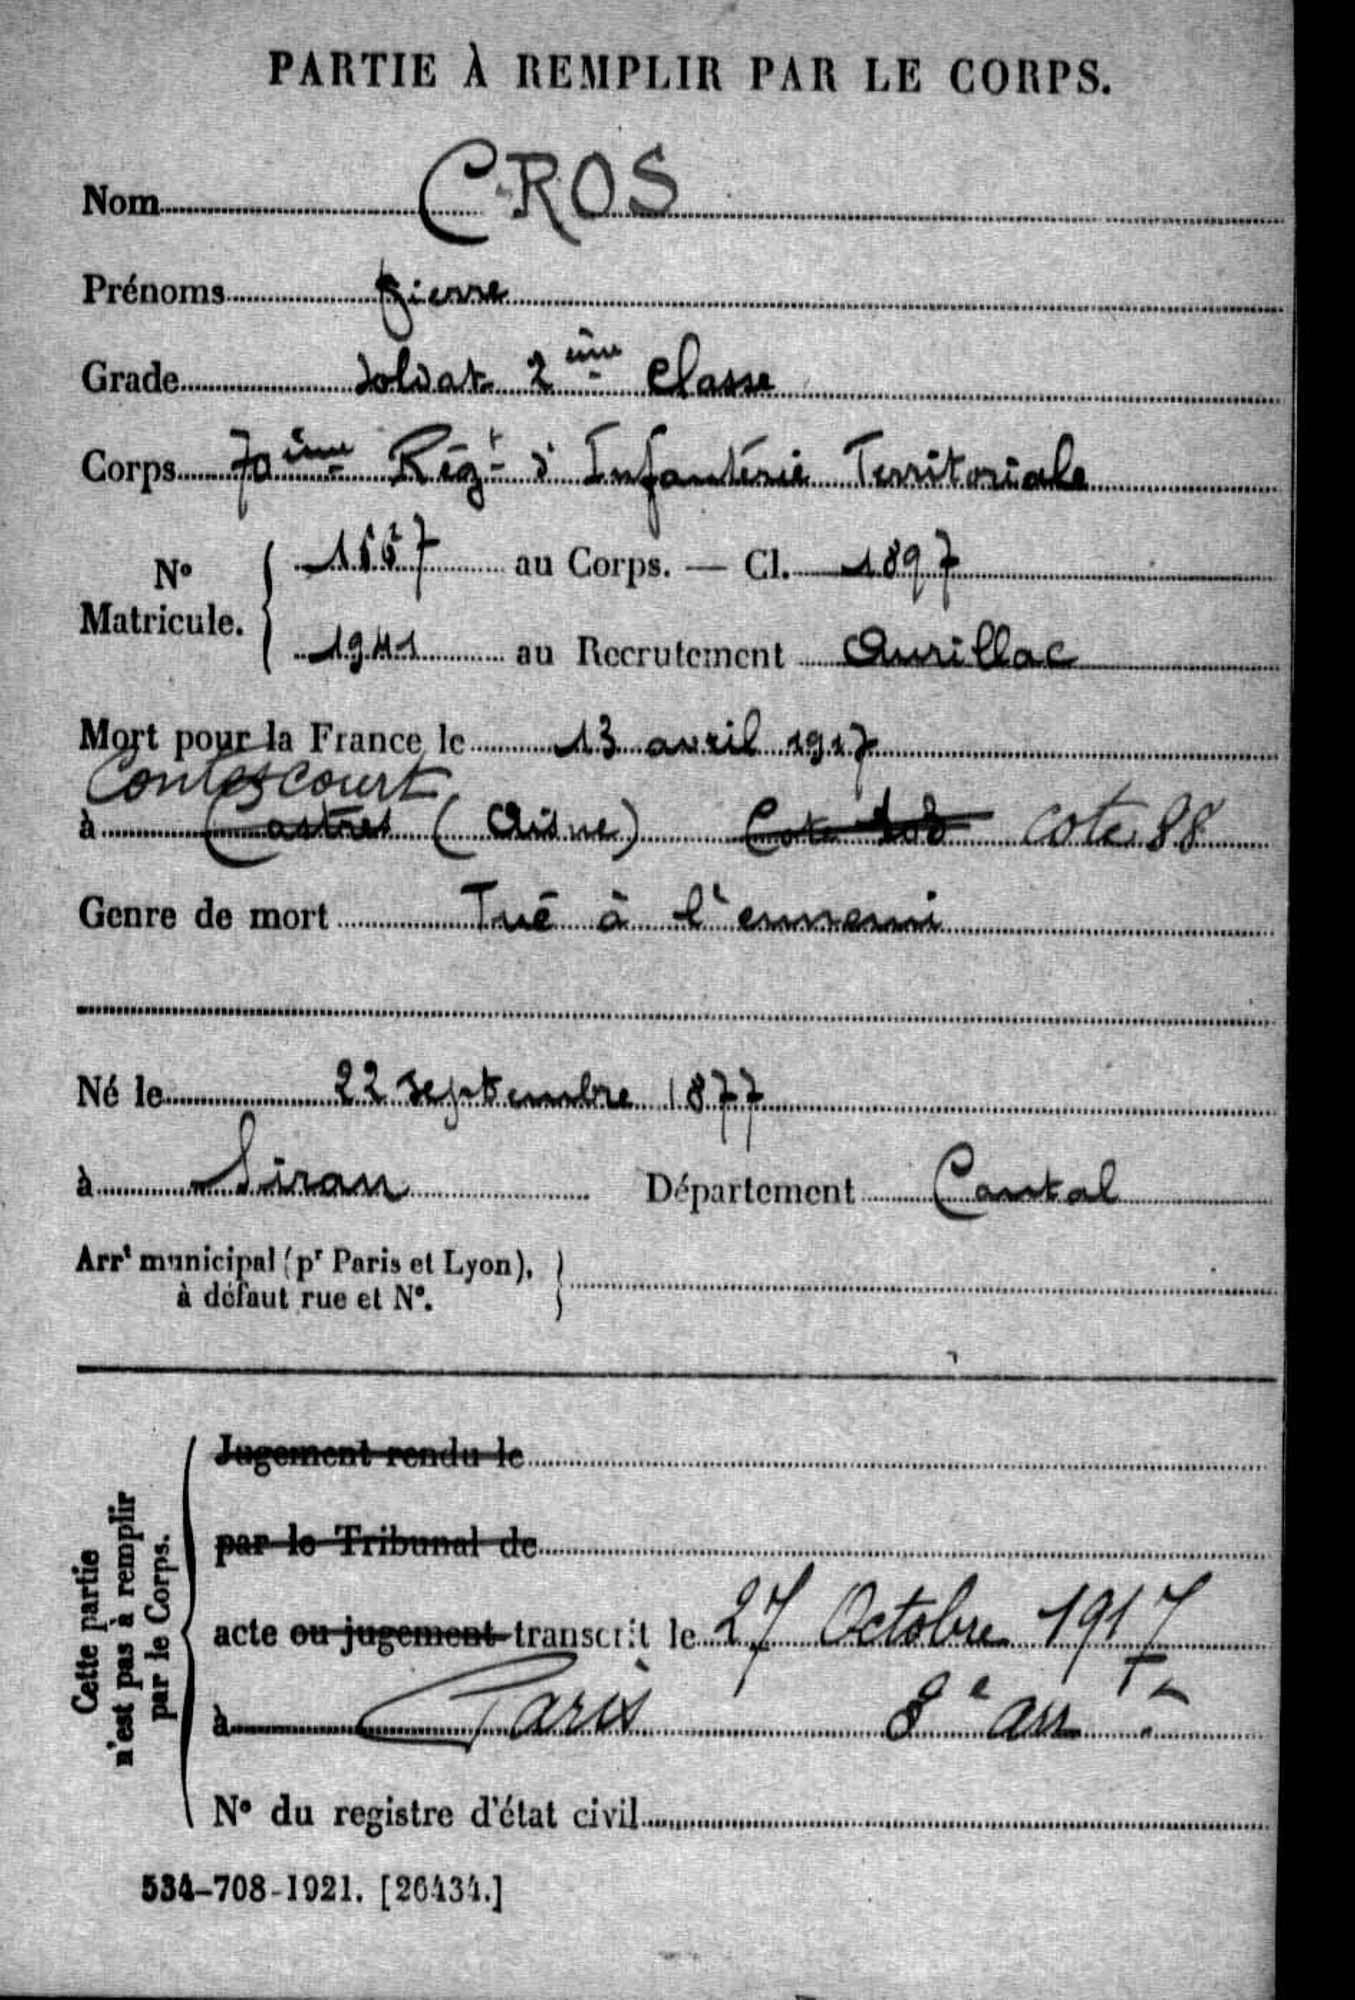 PARTIE À REMPLIR PAR LE CORPS.
Nom CROS
Prénoms Pierre
Grade Soldat 2ème Classe
Corps 70ème Régt d'Infanterie Territoriale
N° Matricule. au Corps. — Cl. 1897
1941 au Recrutement Aurillac
Mort pour la France le 13 avril 1917
Contescourt
à Castres (Aisne) Cote cote 88
Genre de mort Tué à l'ennemi
Né le 22 septembre 1877
à Siran Département Cantal
Arrt municipal (pr Paris et Lyon),
à défaut rue et N°.
Cette partie
n'est pas à remplir
par le Corps.
Jugement rendu le
par le Tribunal de
acte ou jugement transcrit le 27 Octobre 1917
à Paris 8e arrt
N° du registre d'état civil
534-708-1921. [26434.]